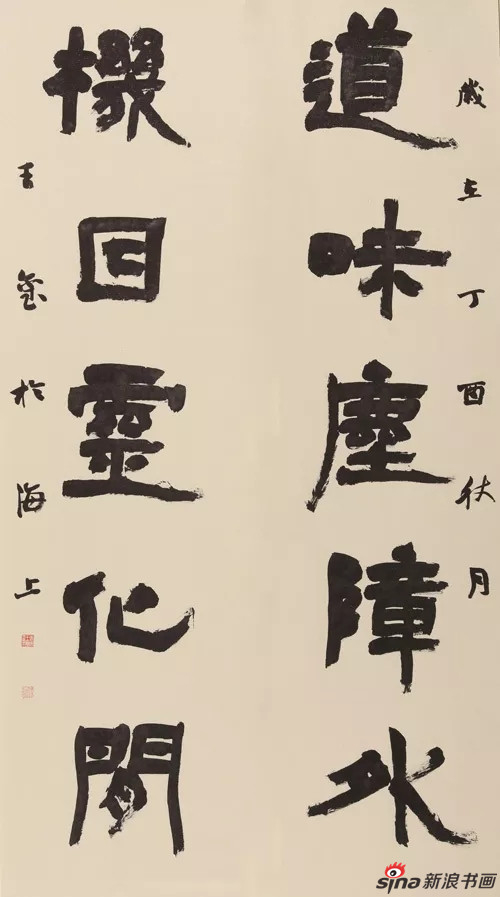 歲在丁酉秋月
道味塵障外
機回靈化閒
於海上
sina新浪书画